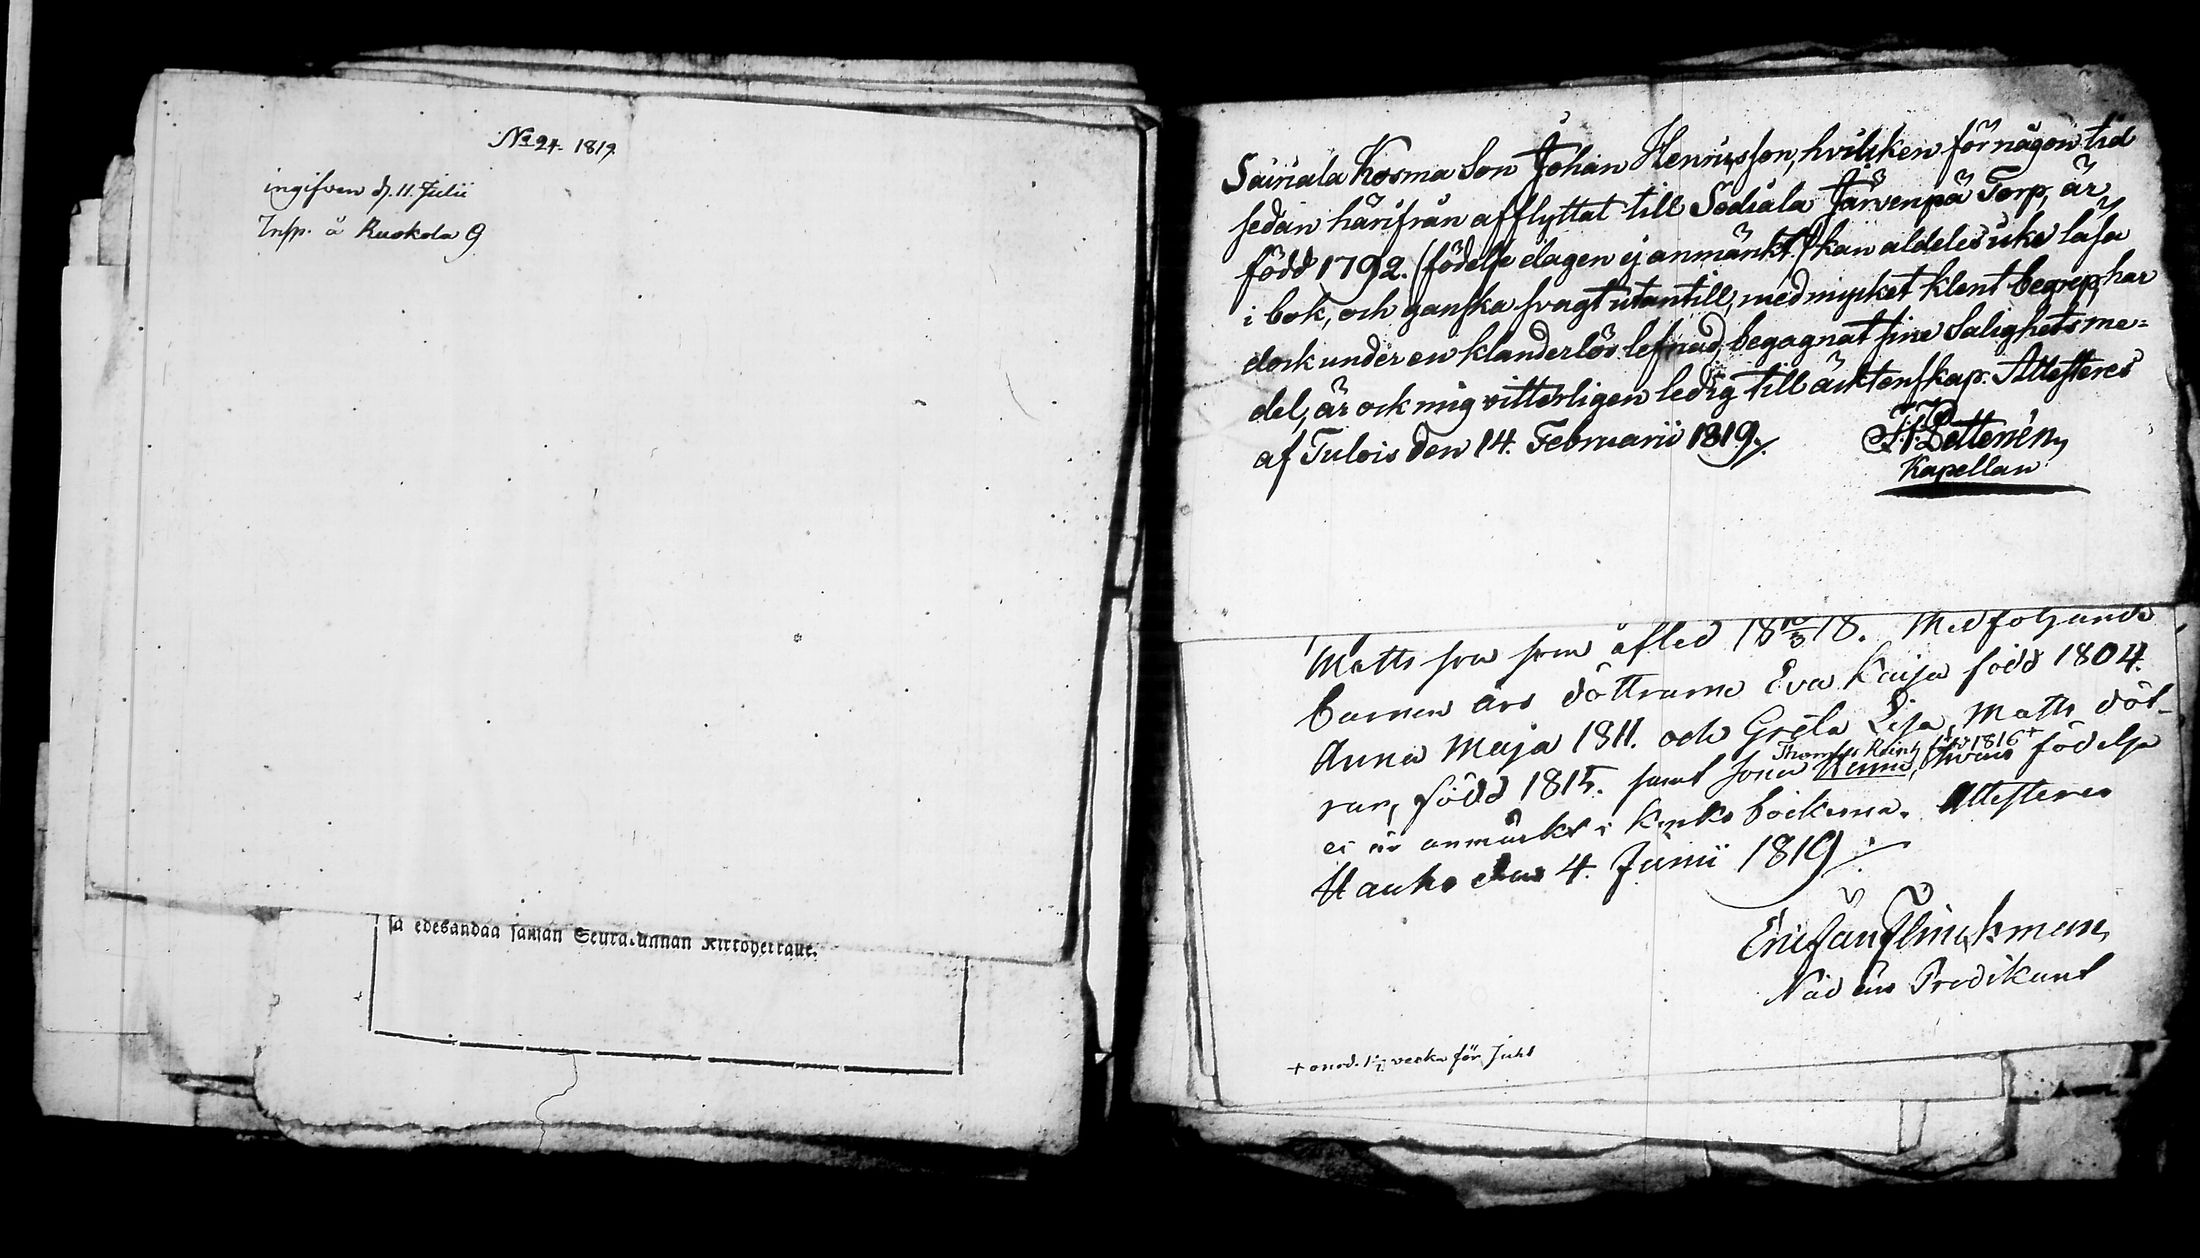 No 24. 1819
ingifven d. 11 Julii
Insp. å Ruokola 9
sa edesandaa saman Seurakunnan Kirkoherralle.
Sairiala Kosma Son Johan Henricsson, hvilken för någon tid
sedan härifrån afflyttat till Sodiala Järvenpä Torp, är
född 1792. (födelse dagen ej anmärkt.) kan aldeles icke läsa
i bok, och ganska svagt utantill, med mycket klent begrep, har
dock under en klanderlös lefnad, begagnat sine Salighets me-
del, är ock mig vitterligen ledig till äcktenskap. Attesteres
af Tulois den 14. Februarii 1819.
Kapellan
Matts son som afled 18 10/3 18. Medföljande
barnen äro döttrarna Eva Kaisa född 1804.
Anna Maja 1811. och Greta Lisa, Matts döt-
Thomas född 1816 +
rar, född 1815. samt sonen hvars födelse
ej är anmärkt i Kyrko böckerna. Attesteres
Hauho den 4. Junii 1819
Eric Jan Flinckman,
Nåd års Predikant
+ omd. 1 1/2 vecka för Juhl